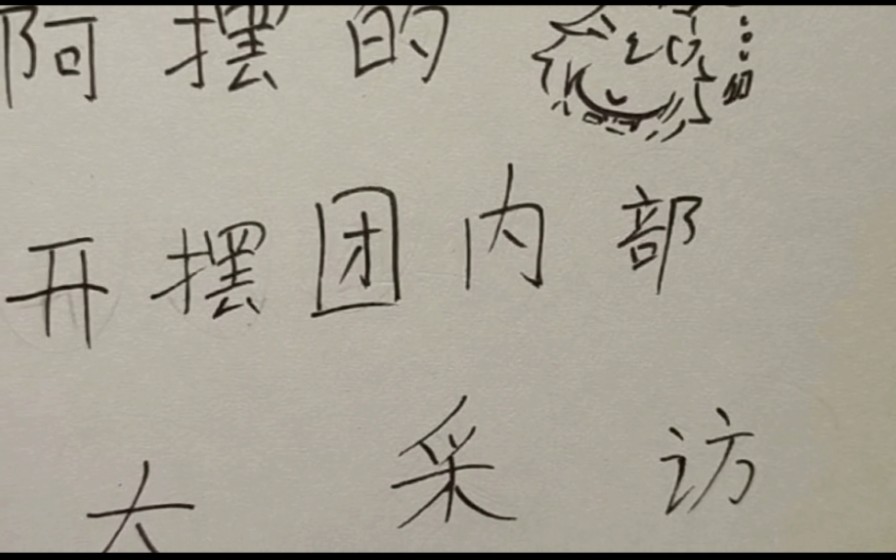 阿摆的
开摆团内部
大采访